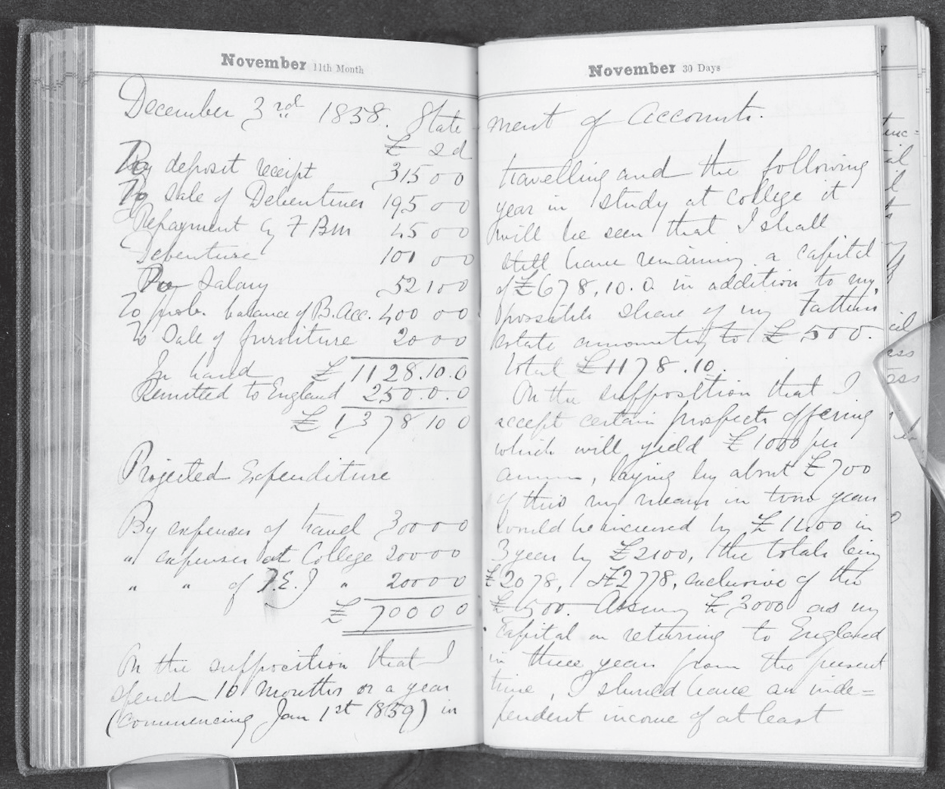 November 11th Month
December 3rd 1858. State
£ s d
By deposit receipt 315 0 0
To Sale of Debentures 195 0 0
Repayment by F Bm 45 0 0
Debenture 101 0 0
Per Salary 52 10 0
To prob. balance of B. Acc. 400 00
To Sale of furniture 20 0 0
In hand £ 1128.10.0
Remitted to England 250.0.0
£ 1378 10 0
Projected Expenditure
By expenses of travel 300 0 0
" expenses at College 200 0 0
" " of " 200 0 0
£ 700 0 0
On the supposition that I
spend 10 months or a year
(commencing Jan 1st 1859) in
November 30 Days
ment of Accounts.
travelling and the following
year in study at College it
will be seen that I shall
still have remaining a capital
of £678.10.0 in addition to my
possible share of my Fathers
estate amounting to £500.
total £1178.10.
On the supposition that I
accept certain prospects offering
which will yield £1000 per
annum, laying by about £700
of this my means in two years
would be increased by £1400 in
3 years by £2100, the totals being
£2078, £2778, exclusive of the
£500. Assuming £3000 as my
capital on returning to England
in three years from the present
time, I should have an inde=
pendent income of at least